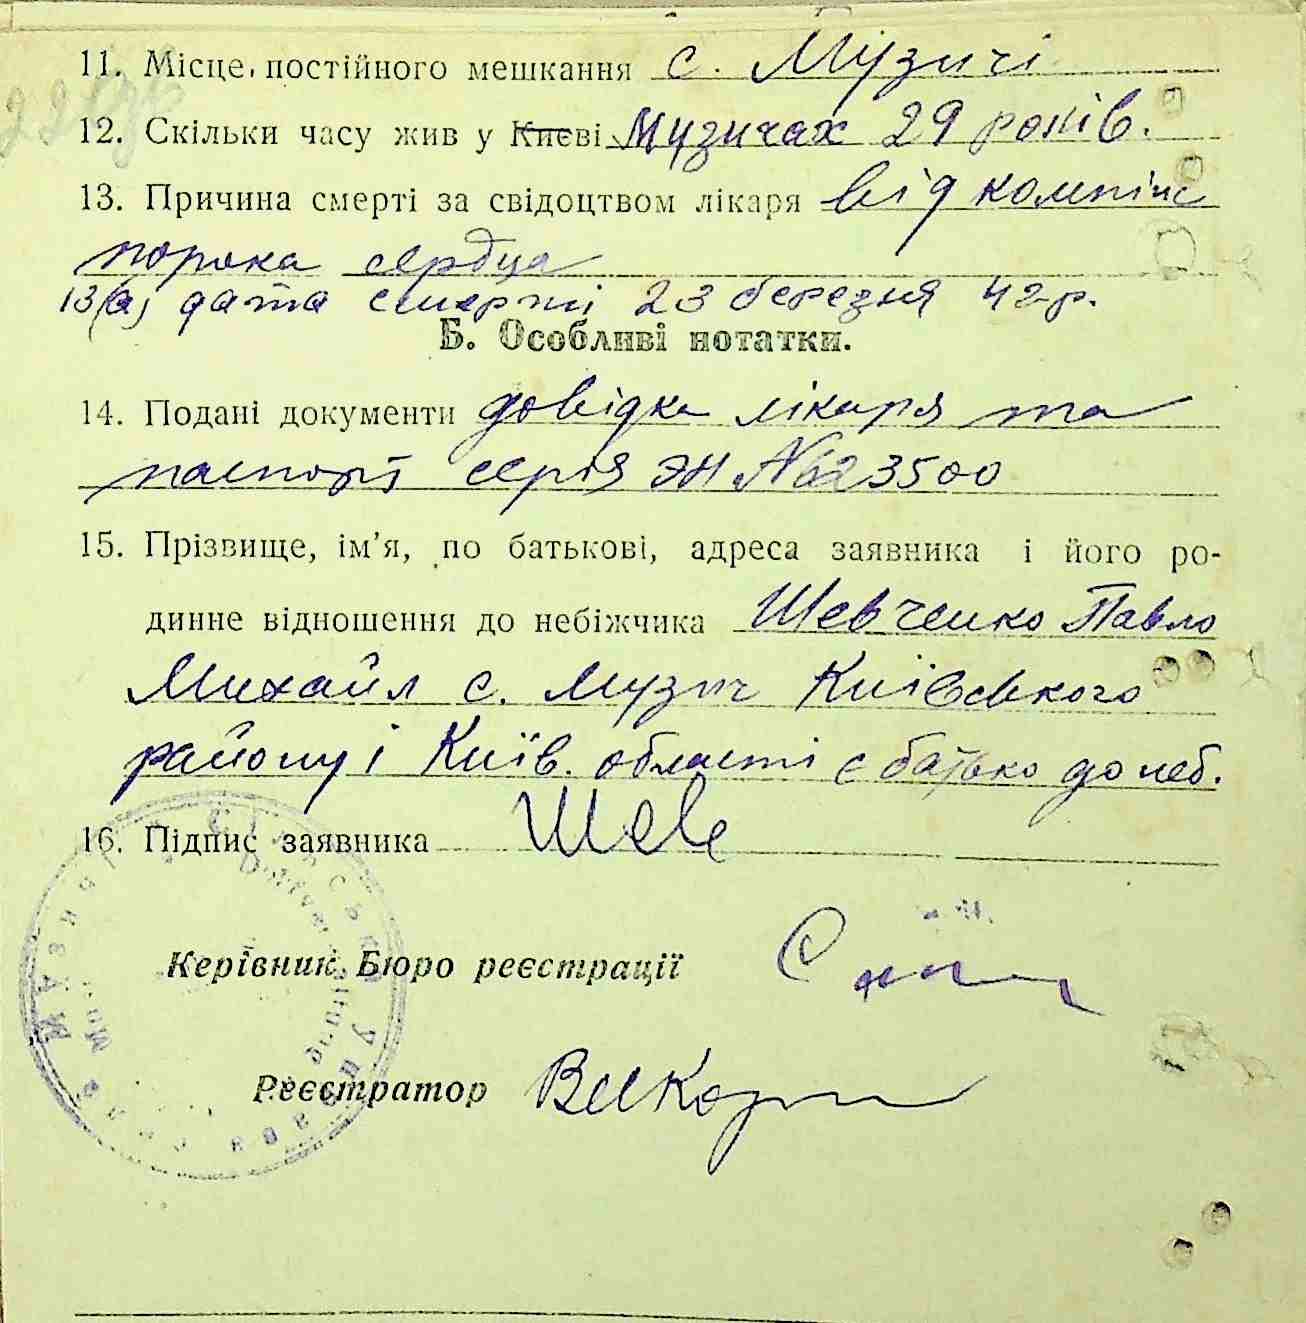 11. Місце постійного мешкання с. Музичі
12. Скільки часу жив у Києві Музичах 29 років.
13. Причина смерті за свідоцтвом лікаря від
порока сердца
13(а) дата смерті 23 березня 42 р.
Б. Особливі нотатки.
14. Подані документи довідка лікаря та
паспорт серія ЭН №623500
15. Прізвище, ім’я, по батькові, адреса заявника і його ро-
динне відношення до небіжчика Шевченко Павло
Михайл с. Музич Київського
району і Київ. області є батько до неб.
16. Підпис заявника Шев
Керівник Бюро реєстрації
Реєстратор